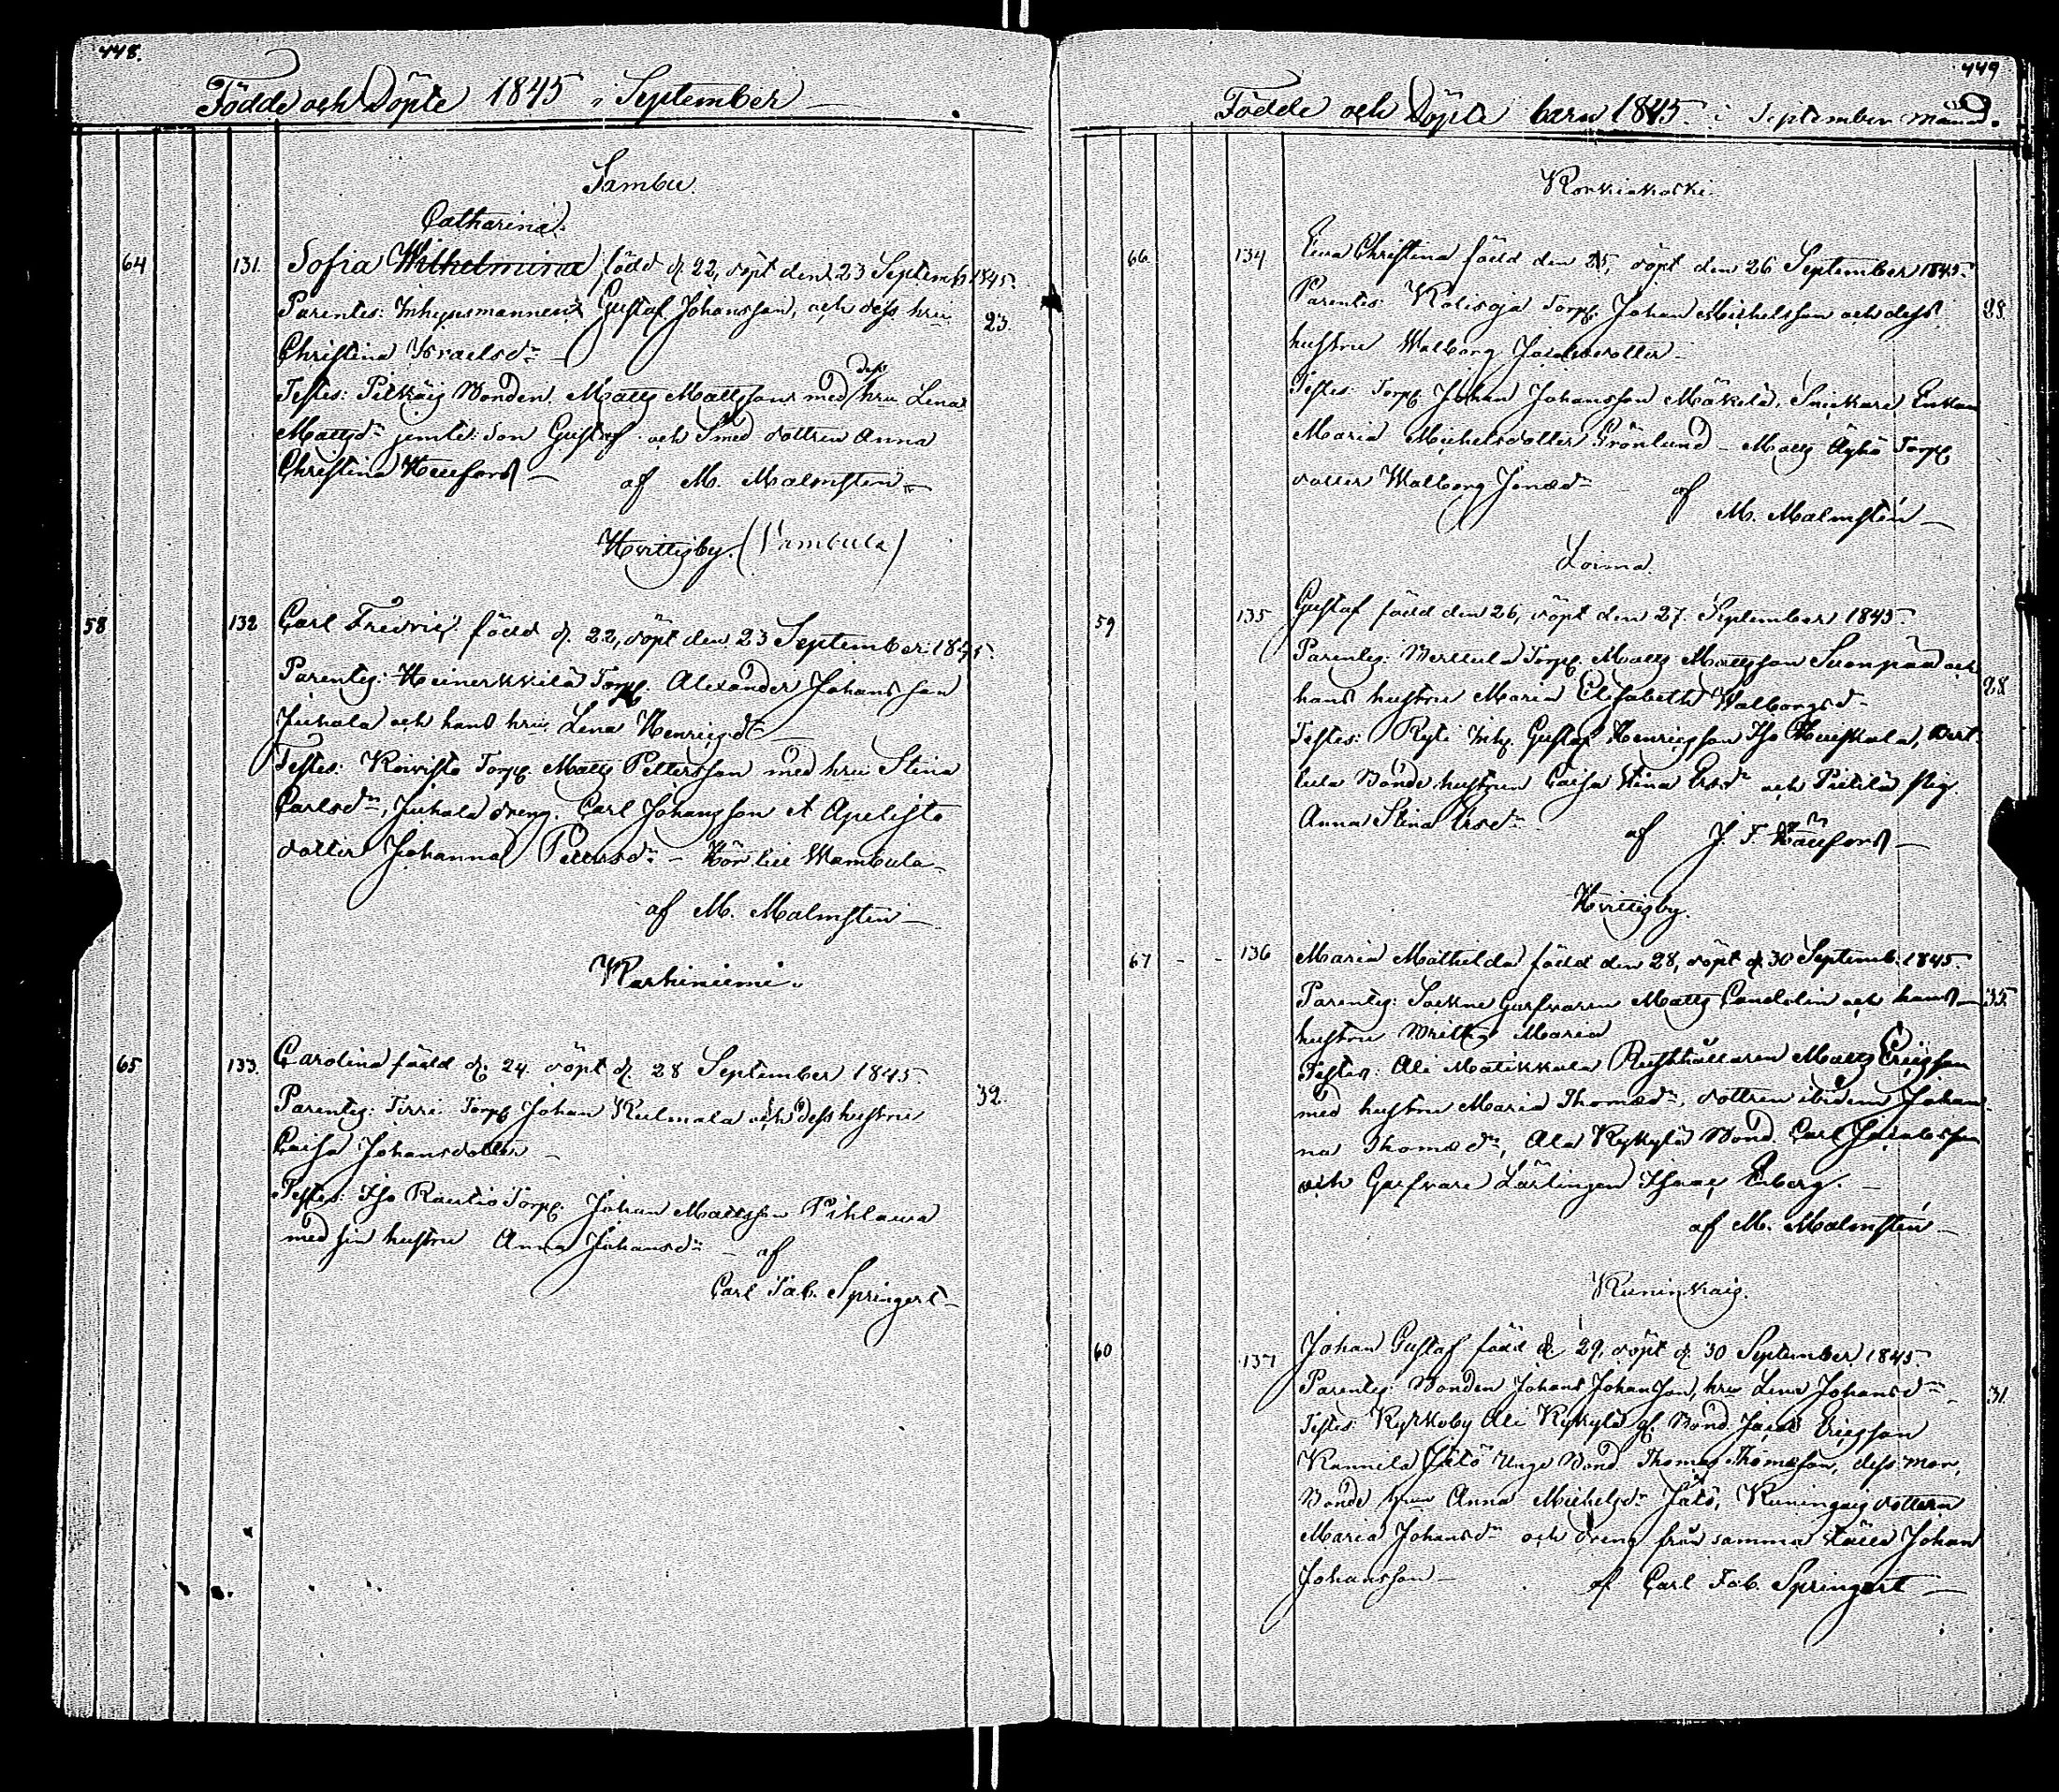 448.
Födde och Döpte 1845 i September
Sambu
Catharina
64 131. Sofia Wilhelmina född d. 22, döpt den 23 Septemb 1845.
Parentes: Inhysesmannen Gustaf Johansson, och dess hru 23.
Christina Israelsdr
dess
Testes: Pilkäis Bonden Matts Mattsson med hru Lena
Mattsdr jemte Son Gustaf och Smed dottren Anna
Christina
af M. Malmsten
Hvittisby. (Vambula)
58 132 Carl Fredric född d. 22, döpt den 23 September 1845.
Parentes: Heinerkkilä Torp. Alexander Johansson
Juhala och hans hru Lena Henricsdr
Testes: Koivisto Torp. Matts Pettersson med hru Stina
Carlsdr, Juhala dreng. Carl Johansson et Apelisto
dotter Johanna Pettersdr - Hör till Wambula
af M. Malmsten
Karhiniemi.
65 133. Carolina född d. 24. döpt d. 28 September 1845.
Parentes: Tirri Torp Johan Kulmala och dess hustru 32.
Caisa Johansdotter
Testes: Iso Rautio Torp. Johan Mattsson Pihlawa
med sin hustru Anna Johansdr - af
Carl Fab. Springert
449
Födde och Döpte barn 1845. i September månad.
Korkiakoski.
66. 134 Eva Christina född den 25, döpt den 26 September 1845.
Parentes: Kolisoja Torp. Johan Michelsson och dess 28.
hustru Walborg Jacobsdotter
Testes: Torp. Johan Johansson Mäkelä, Snickare Enkan
Maria Michelsdotter Grönlund - Matts Äyhö Torp
dotter Walborg Jonasdr af
M. Malmstén
Loima.
59 135 Gustaf född den 26, döpt den 27. September 1845.
Parentes: Berttula Torp. Matts Mattsson Suonpää och
hans hustru Maria Elisabeth Walborgsd 28
Testes: Ryti Inh. Gustaf Henricsson Iso Heiskala, Bert-
tula Bonde hustrun Caisa Stina Ersdr och Pietilä pig.
Anna Stina Ersdr
af J. F.
Hvittisby.
67 - - 136 Maria Mathilda född den 28, döpt d. 30 Septemb. 1845.
Parentes: Sockne Garfvaren Matts Candelin och hans 35.
hustru Maria
Testes: Ali Matikkala Rusthållaren Matts Ericsson
med hustru Maria Thomasdr, dottren ibidem Johan-
na Thomasdr, Ala Kykylä Bond. Carl Jacobsson
och Garfvare Lärlingen Isaac Enberg.
af M. Malmstén
Kuninkais.
60 137 Johan Gustaf född d 29, döpt d. 30 September 1845.
Parentes: Bonden Johan Johansson, hru Lena Johansdr 31.
Testes: Kyrkoby Ali Kykylä gl. Bond. Jacob Ericsson
Kannila Jätö Unge Bond. Thomas Thomasson, dess mor,
Bonde hrun Anna Michelsdr Jätö, Kuningais dottern
Maria Johansdr och dreng från samma ställe Johan
Johansson af Carl Fab. Springert